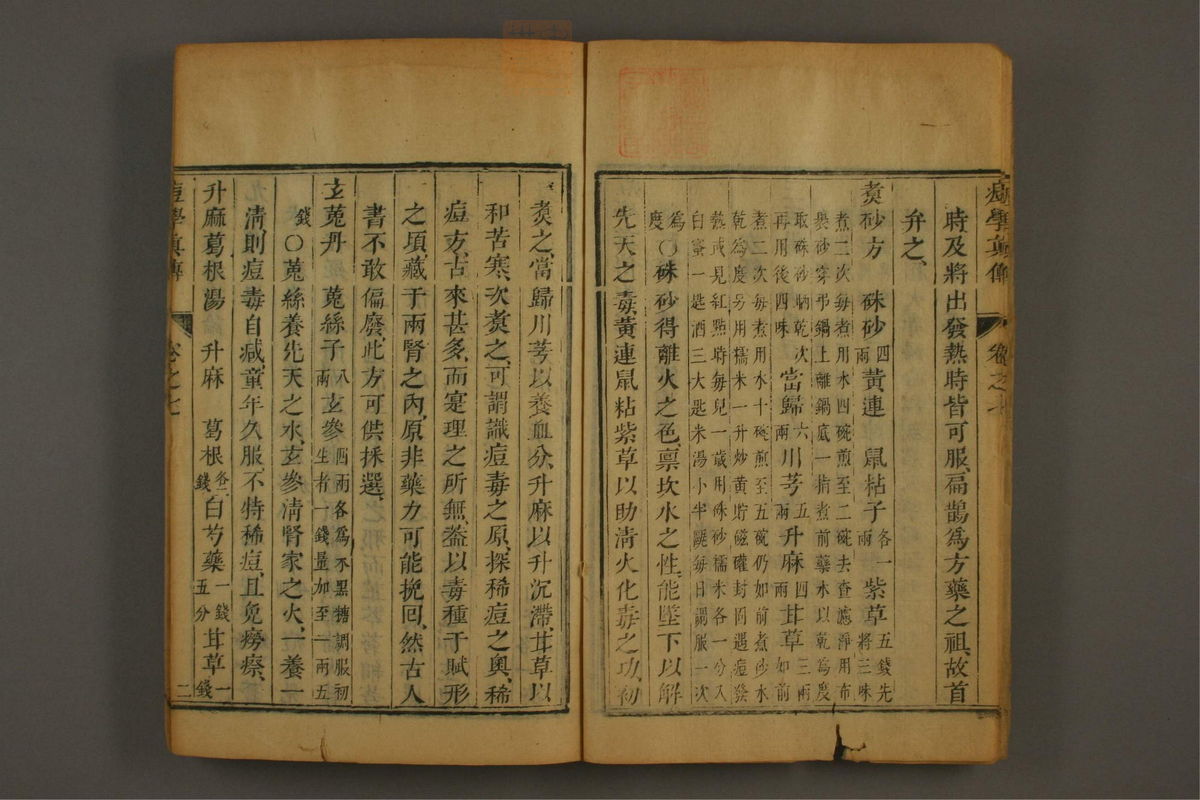 痘學真傳 卷之七
時及將出發熱時皆可服扁鵲爲方藥之祖故首
弁之
煑砂方 硃砂四兩 黃連 鼠粘子各一兩 紫草五錢先將三味
煮二次每煮用水四碗煎至二碗去查濾淨用布
褁砂穿弔鍋上離鍋底一指煮前藥水以乾爲度
取硃砂晒乾次 當歸六兩 川芎五兩 升麻四兩 甘草三兩如前
再用後四味
煮二次每煮用水十碗煎至五碗仍如前煮砂水
乾爲度另用糯米一升炒黃貯磁礶封固遇痘發
熱或見紅㸃時每兒一歲用硃砂糯米各一分入
白蜜一匙酒三大匙米湯小半甌每日調服一次
爲度○硃砂得離火之色禀坎水之性能墜下以解
先天之毒黃連鼠粘紫草以助淸火化毒之功初
煑之當歸川芎以養血分升麻以升沉滯甘草以
和苦寒次煑之可謂識痘毒之原探稀痘之奧稀
痘方古來甚多而寔理之所無葢以毒種于賦形
之項藏于兩腎之內原非藥力可能挽回然古人
書不敢偏廢此方可供採選
玄菟丹 菟絲子八兩 玄參四兩各爲末黑糖調服初生者一錢量加至一兩五
錢○菟絲養先天之水玄參淸腎家之火一養一
淸則痘毒自減童年久服不特稀痘且免癆瘵
升麻葛根湯 升麻 葛根各二錢 白芍藥一錢五分 甘草一錢
痘學真傳 卷之七 二